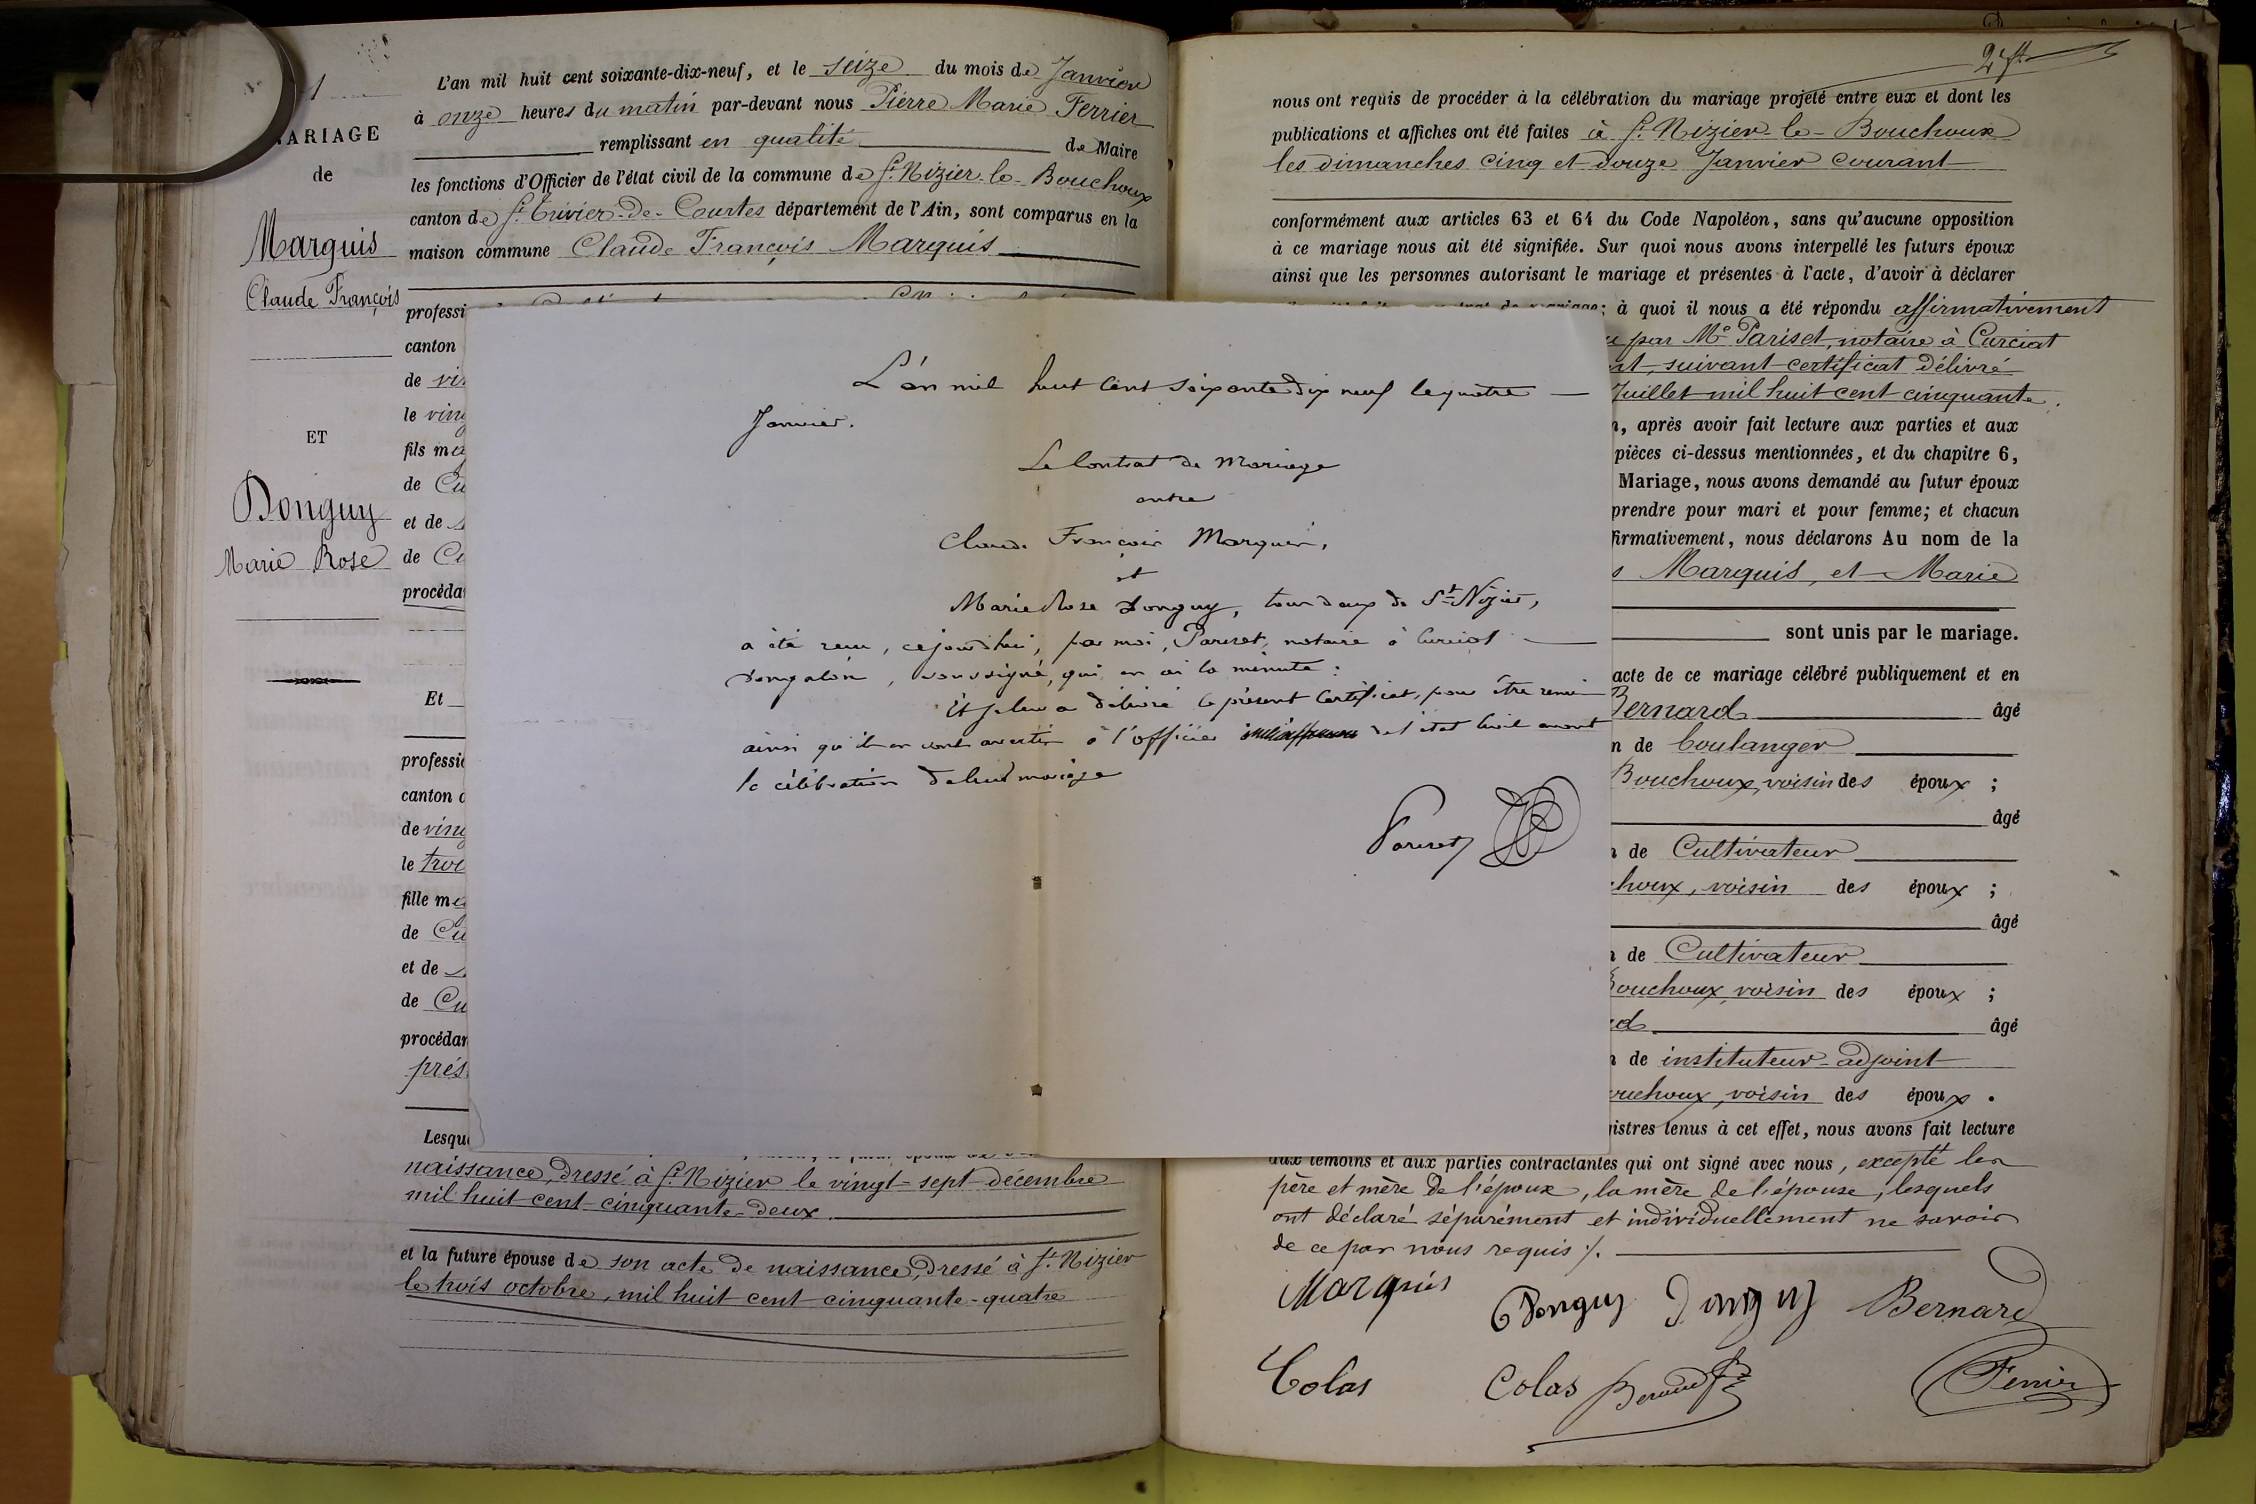 1
MARIAGE
de
Marquis
Claude François
ET
Donguy
Marie Rose
L'an mil huit cent soixante-dix-neuf, et le seize du mois de Janvier
à onze heures du matin par-devant nous Pierre Marie Ferrier
remplissant en qualité de Maire
les fonctions d'Officier de l'état civil de la commune de St. Nizier-le-Bouchoux
canton de St. Trivier-de-Courtes département de l'Ain, sont comparus en la
maison commune Claude François Marquis
professi
canton
de vin
le ving
fils me
de Cu
et de
de Cu
procéda
Et
professio
canton d
de ving
le troi
fille me
de Cu
et de
de Cu
procédan
prés
Lesqu
naissance, dressé à St. Nizier le vingt-sept décembre
mil huit cent cinquante-deux
et la future épouse de son acte de naissance, dressé à St. Nizier
le trois octobre, mil huit cent cinquante-quatre
L'an mil huit cent soixante dix neuf le quatre
Janvier.
Le Contrat de Mariage
entre
Claude François Marquis,
et
Marie Rose Donguy, tous deux de St Nizier,
a été reçu, cejourd'hui, par moi, Pariset, notaire à Curciat
Dongalon, soussigné, qui en ai la minute :
Et je leur ai délivré le présent Certificat, pour être remis
ainsi qu'ils en sont avertis à l'officier de l'état Civil avant
la célébration de leur mariage
Pariset
nous ont requis de procéder à la célébration du mariage projeté entre eux et dont les
publications et affiches ont été faites à St. Nizier-le-Bouchoux
les dimanches cinq et douze Janvier courant
conformément aux articles 63 et 64 du Code Napoléon, sans qu'aucune opposition
à ce mariage nous ait été signifiée. Sur quoi nous avons interpellé les futurs époux
ainsi que les personnes autorisant le mariage et présentes à l'acte, d'avoir à déclarer
mariage; à quoi il nous a été répondu affirmativement
u par Me Pariset, notaire à Curciat
nt, suivant certificat délivré
Juillet mil huit cent cinquante.
n, après avoir fait lecture aux parties et aux
pièces ci-dessus mentionnées, et du chapitre 6,
Mariage, nous avons demandé au futur époux
prendre pour mari et pour femme; et chacun
firmativement, nous déclarons Au nom de la
s Marquis, et Marie
sont unis par le mariage.
acte de ce mariage célébré publiquement et en
Bernard âgé
n de boulanger
Bouchoux, voisin des époux ;
âgé
n de Cultivateur
houx, voisin des époux ;
âgé
n de Cultivateur
Bouchoux, voisin des époux ;
rd âgé
n de instituteur-adjoint
ouchoux, voisin des époux .
gistres tenus à cet effet, nous avons fait lecture
aux témoins et aux parties contractantes qui ont signé avec nous, excepté les
père et mère de l'époux, la mère de l'épouse, lesquels
ont déclaré séparément et individuellement ne savoir
de ce par nous requis ./.
Marquis Donguy Donguy Bernard
Colas Colas Bernard Ferrier